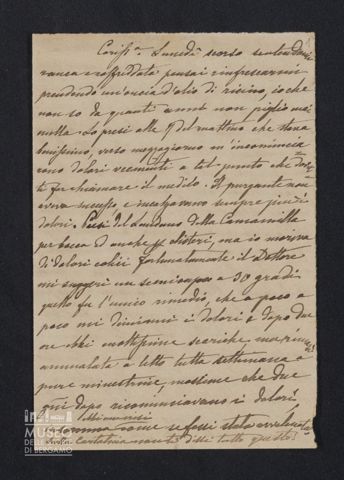 Cariss.ma Lunedì scorso sentendomi
rauca e raffreddata pensai rinfrescarmi
prendendo un'oncia d'olio di ricino, io che
non so da quanti anni non piglio mai
nulla. Lo presi alle 9 del mattino che stava
benissimo, verso mezzogiorno m'incomincia
rono dolori veementi a tal punto che
far chiamare il medico. Il purgante non
aveva e sempre più i
dolori. Presi del Laudano della Camomilla
per bocca ed anche clisteri, ma io moriva
di dolori colici fortunatamente il Dottore
mi suggerì un semicupio a 30 gradi
questo fu l'unico rimedio, che a poco a
poco mi diminuì i dolori e dopo due
ore ebbi moltissime scariche, ma rimasi
ammalata a letto tutta settimana a
pure minestrine, massime che due
giorni dopo ricominciavano i dolori
come se fossi stata avvelenata
Cartolina non ti dissi tutto questo!
MUSEO
DELLE
DI BERGAMO